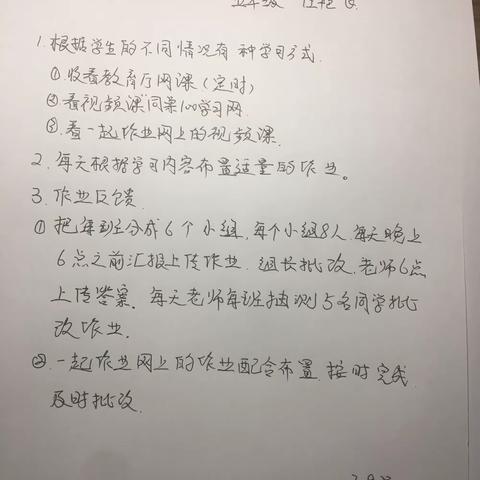 五年级
1. 根据学生的不同情况有 种学习方式.
① 收看教育厅网课(定时)
② 看视频课"同桌100学习网.
③. 看一起作业网上的视频课.
2. 每天根据学习内容布置适量的作业。
3. 作业反馈
① 把每班分成6个小组,每个小组8人.每天晚上
6点之前汇报上传作业.组长批改.老师6点
上传答案.每天老师每班抽测5名同学批
改作业.
②. 一起作业网上的作业配合布置.按时完成
及时批改.